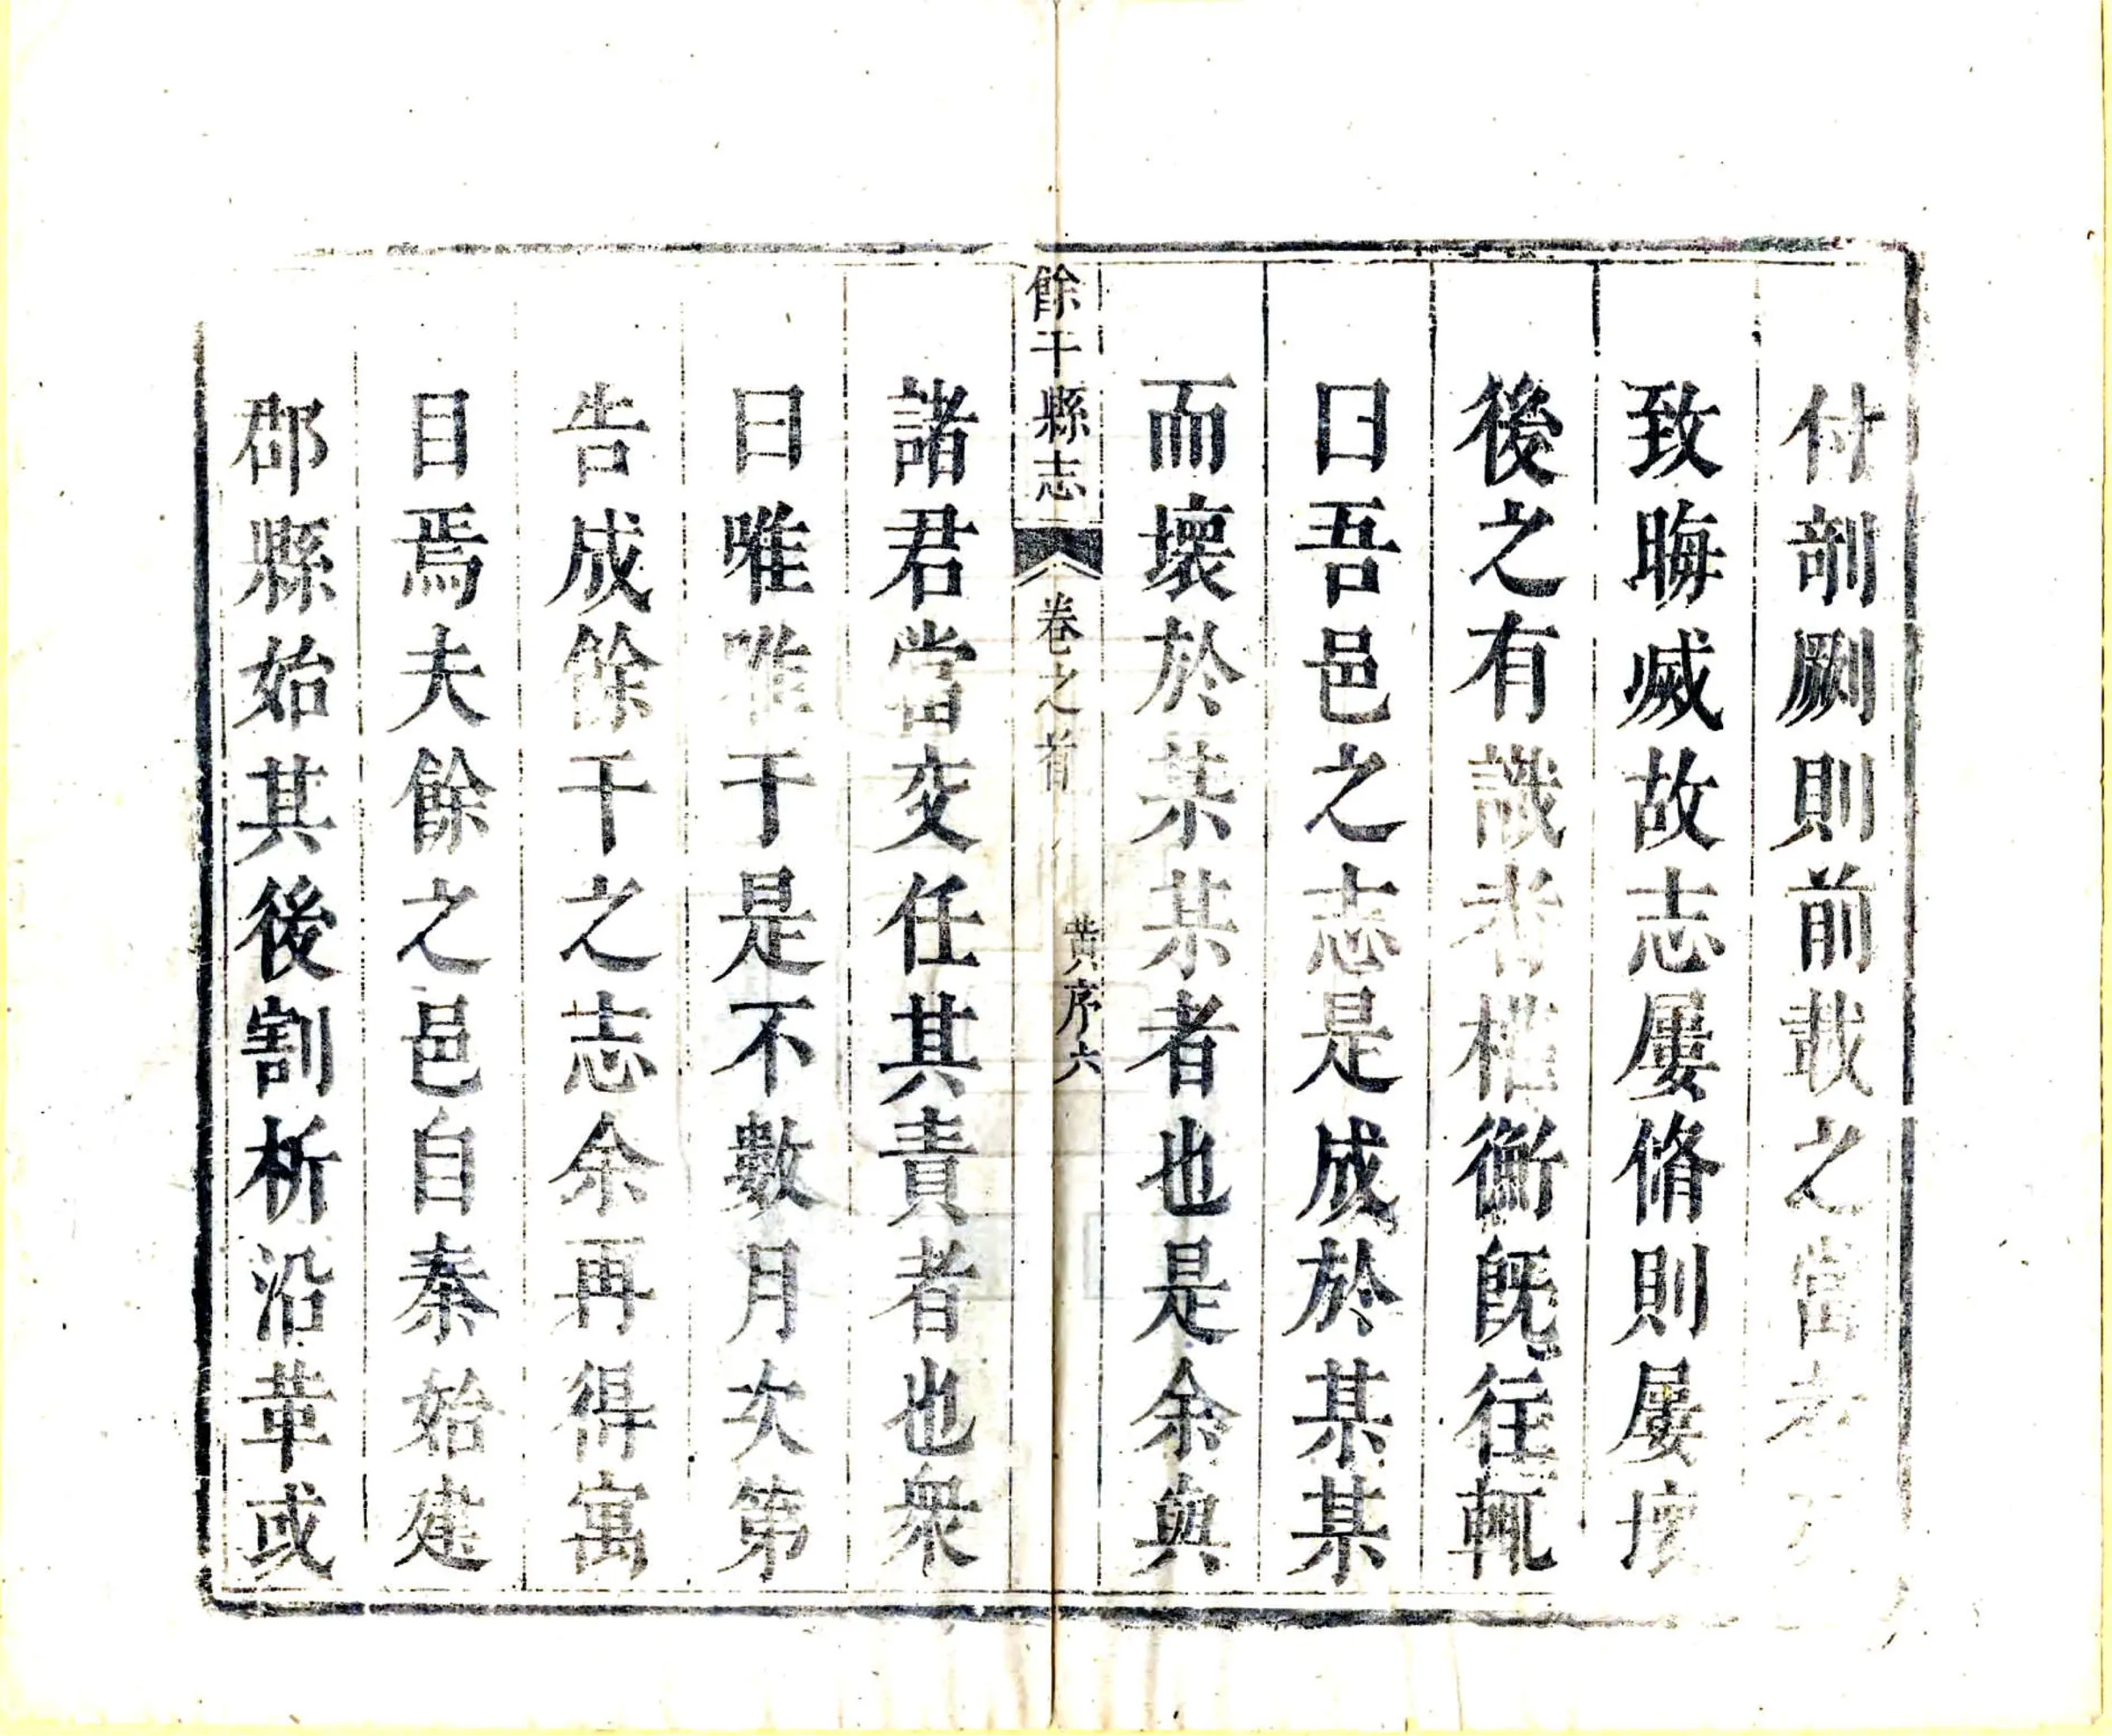 付剞劂則前哉之當者不
致晦烕故志屢脩則屢壞
後之有識者權衡旣往輒
曰吾邑之志是成於某某
而壞於某某者也是余與
餘干縣志
卷之首
黄序六
諸君當交任其責者也衆
曰唯唯于是不數月次第
告成餘干之志余再得寓
目焉夫餘之邑自秦始建
郡縣始其後割析沿革或